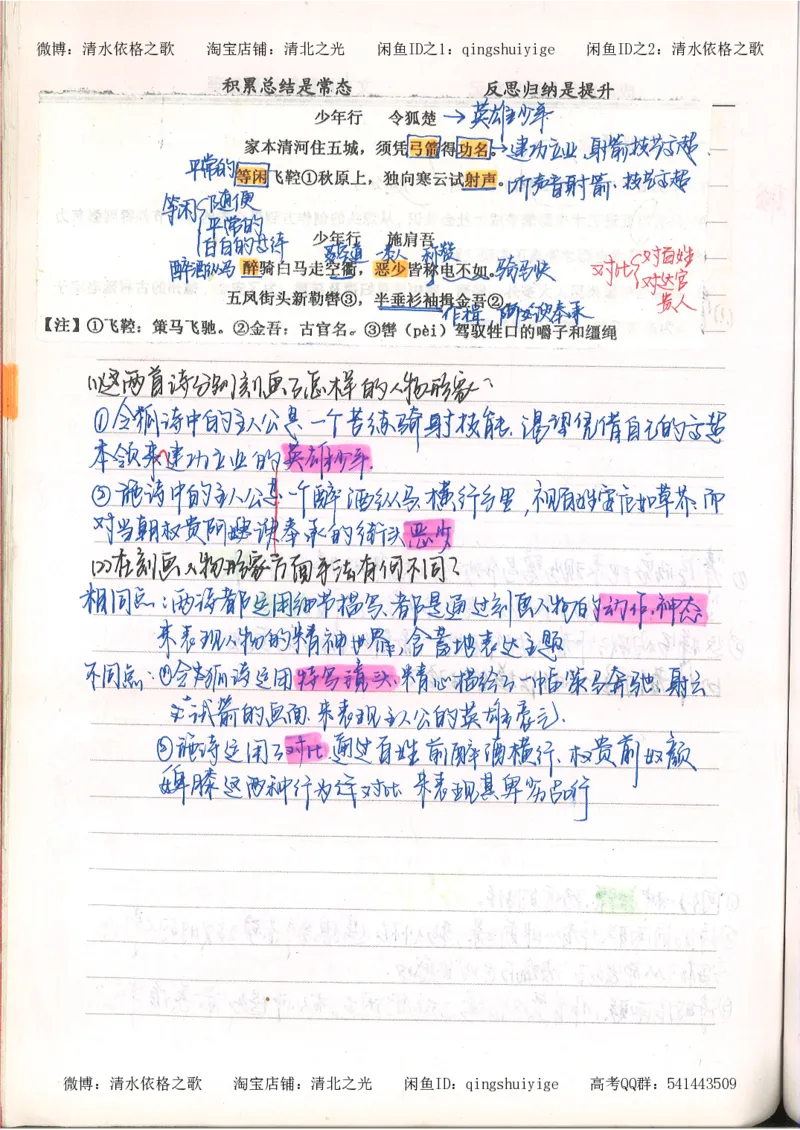 微博：清水依格之歌 淘宝店铺：清北之光 闲鱼ID之1：qingshuiyige 闲鱼ID之2：清水依格之歌
积累总结是常态 反思归纳是提升
少年行 令狐楚 → 英雄少年
家本清河住五城，须凭弓箭得功名。→建功立业，射箭技艺高超
平常的
等闲飞鞚①秋原上，独向寒云试射声。听声音射箭，技艺高超
等闲 随便
平常的
白白的
少年行 施肩吾
醉酒纵马 醉骑白马走空衢，恶少皆称电不如。骑马快
对比 对百姓
对达官
贵人
五凤街头新勒辔③，半垂衫袖揖金吾②
作揖，阿谀奉承
【注】①飞鞚：策马飞驰。②金吾：古官名。③辔（pèi）驾驭牲口的嚼子和缰绳
(1)这两首诗分别刻画了怎样的人物形象？
①令狐诗中的主人公是一个苦练骑射技能，渴望凭借自己的高超
本领来建功立业的英雄少年.
②施诗中的主人公是一个醉酒纵马，横行乡里，视百姓安危如草芥，而
对当朝权贵阿谀奉承的街头恶少
(2)在刻画人物形象方面手法有何不同？
相同点：两诗都运用细节描写，都是通过刻画人物的动作，神态
来表现人物的精神世界，含蓄地表达主题
不同点：①令狐诗运用特写镜头，精心描绘了一幅策马奔驰，射云
试箭的画面，来表现主人公的英雄
②施诗运用了对比，通过百姓前醉酒横行，权贵前奴颜
婢膝这两种行为作对比，来表现其卑劣品行
微博：清水依格之歌 淘宝店铺：清北之光 闲鱼ID：qingshuiyige 高考QQ群：541443509